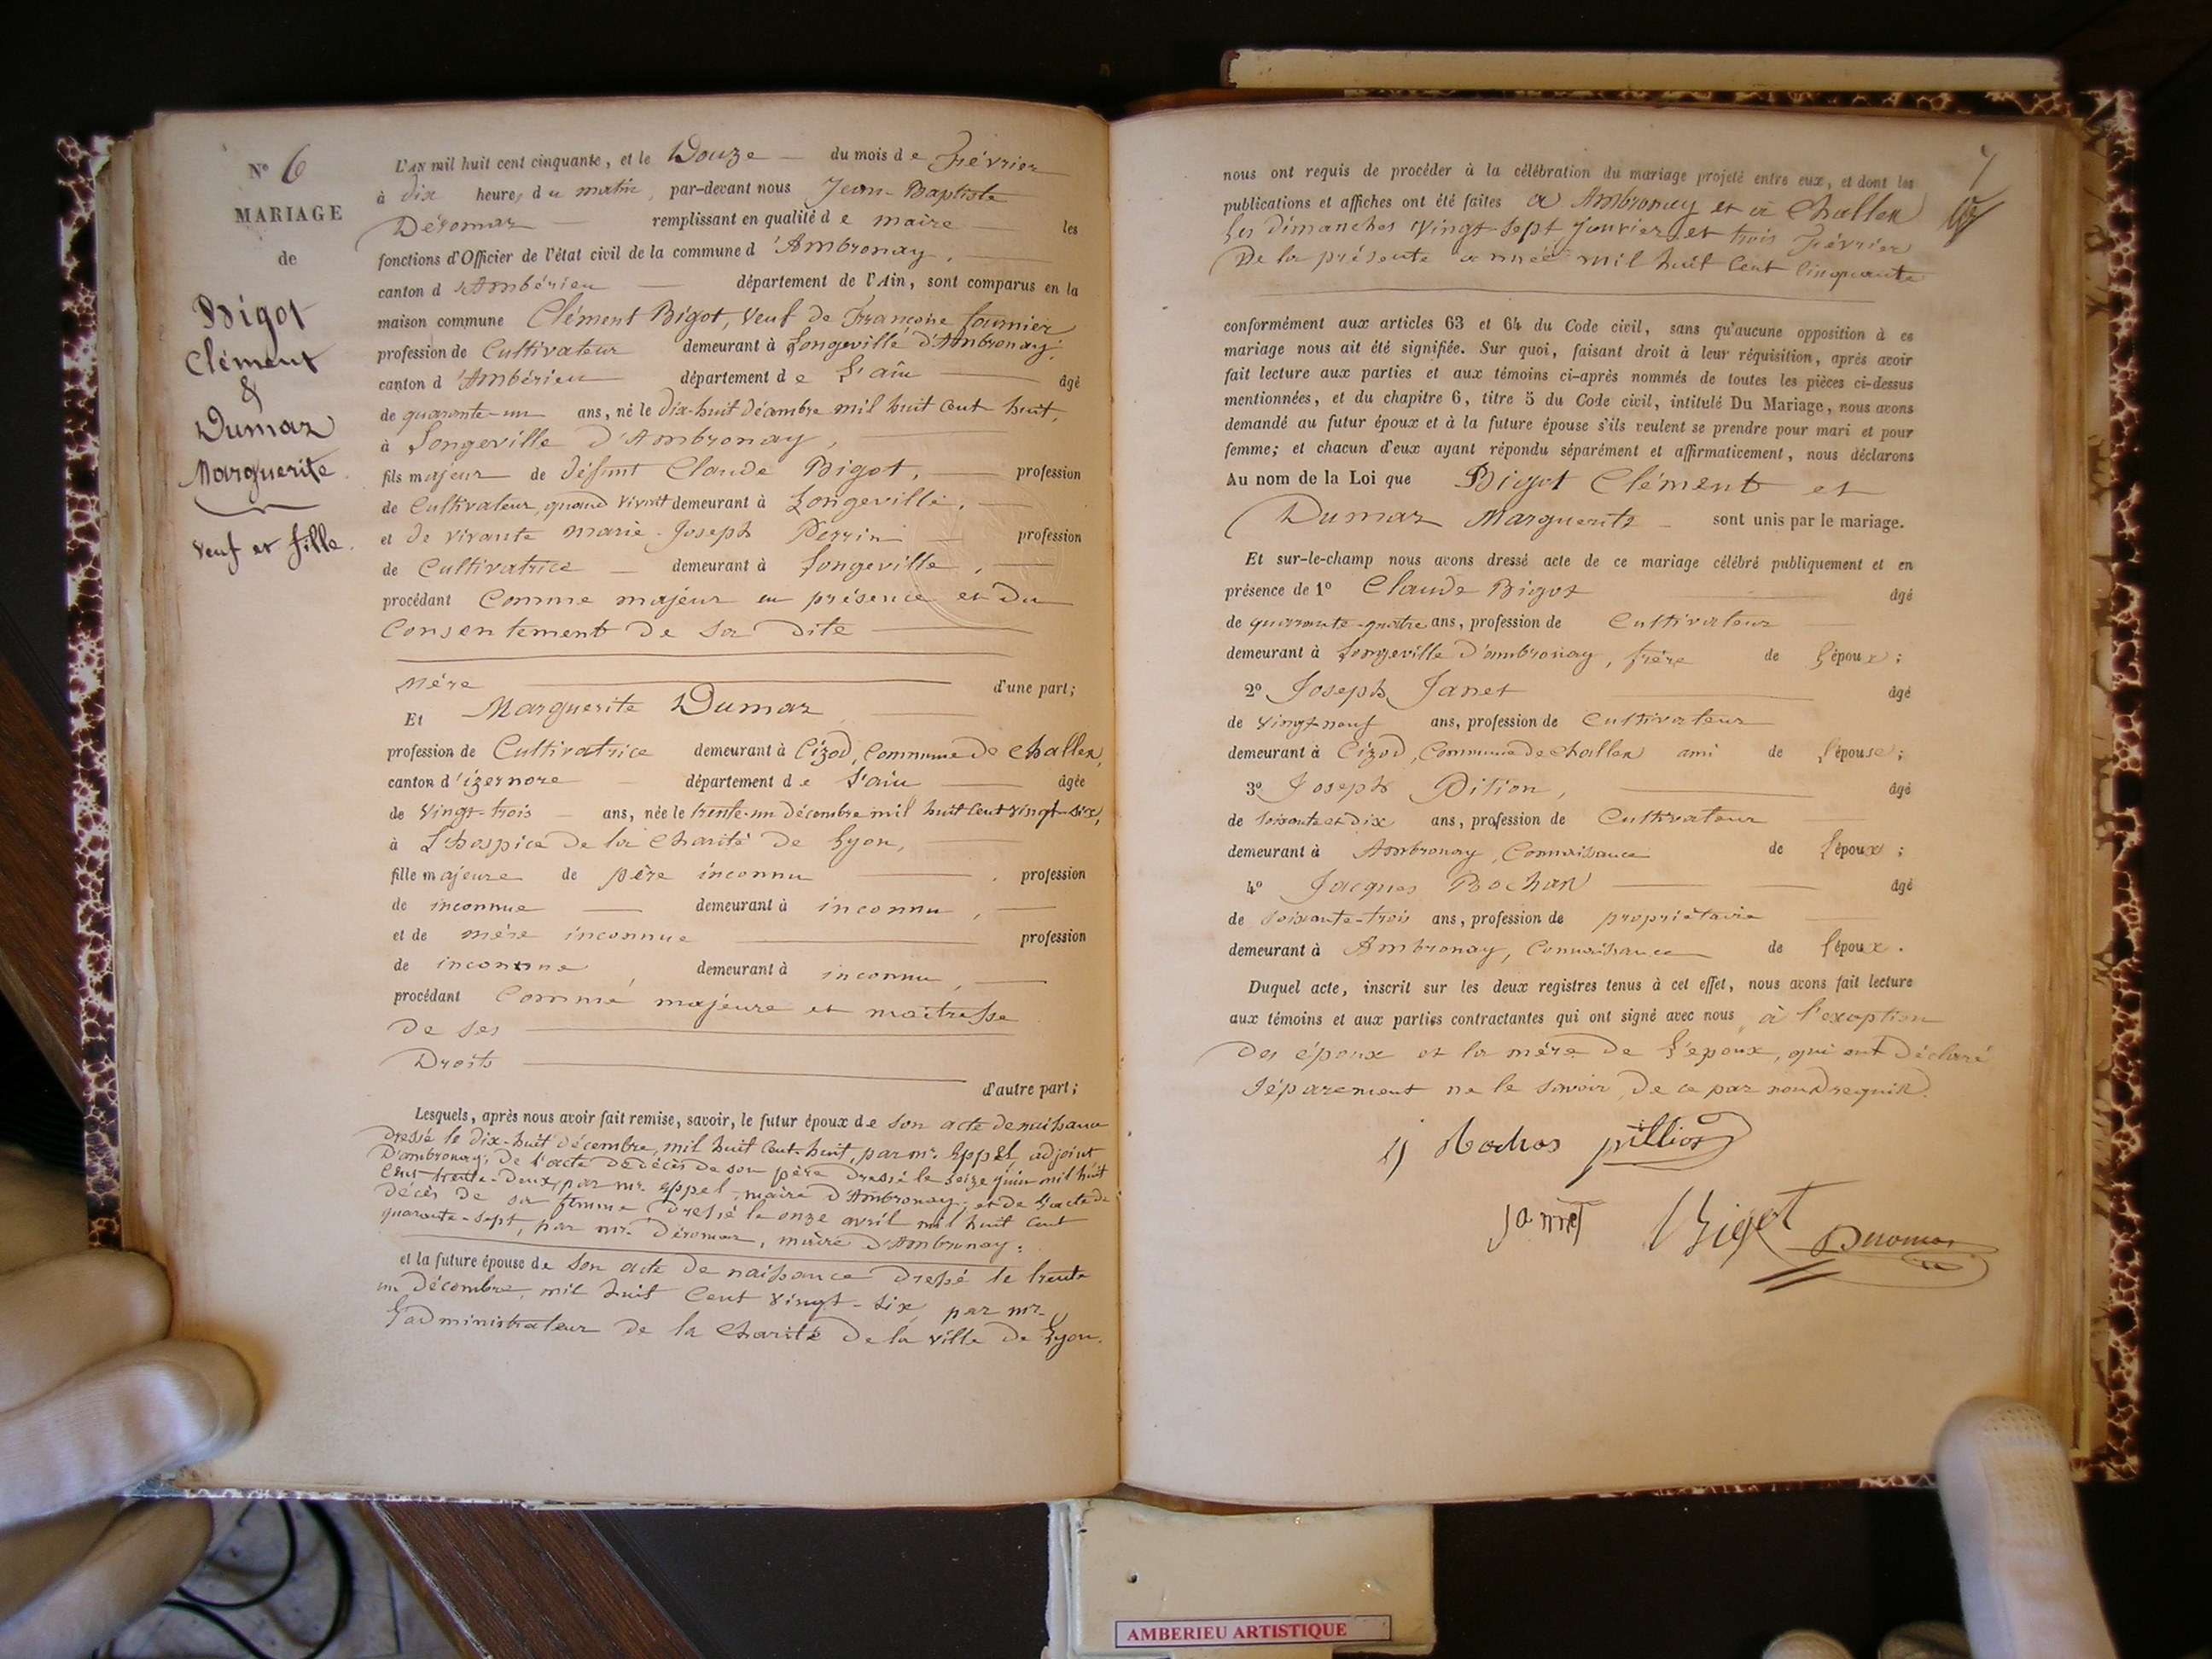 N° 6
MARIAGE
de
Bigot
Clément
&
Dumaz
Marguerite
Veuf et fille.
L'AN mil huit cent cinquante, et le Douze du mois de Février
à dix heures du matin, par-devant nous Jean-Baptiste
Déromas remplissant en qualité de maire les
fonctions d'Officier de l'état civil de la commune d'Ambronay,
canton d'Ambérieu département de l'Ain, sont comparus en la
maison commune Clément Bigot, Veuf de Françoise fournier
profession de Cultivateur demeurant à Longeville d'Ambronay,
canton d'Ambérieu département de L'ain âgé
de quarante-un ans, né le dix-huit décembre mil huit cent huit,
à Longeville d'Ambronay,
fils majeur de défunt Claude Bigot, profession
de Cultivateur, quand vivait demeurant à Longeville,
et de vivante marie-Joseph Perrin profession
de Cultivatrice demeurant à Longeville,
procédant Comme majeur en présence et du
Consentement de sa dite
Mère d'une part;
Et Marguerite Dumaz
profession de Cultivatrice demeurant à Cizod, Commune de Challes,
canton d'izernore département de L'ain âgée
de Vingt-trois ans, née le trente-un décembre mil huit cent vingt-six,
à L'hospice de la Charité de Lyon,
fille majeure de père inconnu profession
de inconnue demeurant à inconnu,
et de mère inconnue profession
de inconnue, demeurant à inconnu,
procédant Comme majeure et maîtresse
de ses
Droits
d'autre part;
Lesquels, après nous avoir fait remise, savoir, le futur époux de son acte de naissance
Dressé le dix-huit décembre, mil huit Cent-huit, par mr. Eppel, adjoint
D'ambronay; de l'acte de décès de son père Dressé le seize juin mil huit
Cent trente-deux, par mr. Eppel, maire d'Ambronay; et de l'acte de
décès de sa femme Dressé le onze avril mil huit Cent
quarante-sept, par mr. Déromas, maire d'Ambronay;
et la future épouse de son acte de naissance Dressé le trente
un Décembre, mil huit Cent Vingt-six, par mr.
L'administrateur de la Charité de la Ville de Lyon.
7
nous ont requis de procéder à la célébration du mariage projeté entre eux, et dont les
publications et affiches ont été faites à Ambronay et à Challes
Les dimanches Vingt-sept Janvier et trois Février
De la présente année mil huit Cent Cinquante
conformément aux articles 63 et 64 du Code civil, sans qu'aucune opposition à ce
mariage nous ait été signifiée. Sur quoi, faisant droit à leur réquisition, après avoir
fait lecture aux parties et aux témoins ci-après nommés de toutes les pièces ci-dessus
mentionnées, et du chapitre 6, titre 5 du Code civil, intitulé Du Mariage, nous avons
demandé au futur époux et à la future épouse s'ils veulent se prendre pour mari et pour
femme; et chacun d'eux ayant répondu séparément et affirmativement, nous déclarons
Au nom de la Loi que Bigot Clément et
Dumaz Marguerite sont unis par le mariage.
Et sur-le-champ nous avons dressé acte de ce mariage célébré publiquement et en
présence de 1° Claude Bigot âgé
de quarante-quatre ans, profession de Cultivateur
demeurant à Longeville d'ambronay, frère de L'époux;
2° Joseph Janet âgé
de Vingt-neuf ans, profession de Cultivateur
demeurant à Cizod, Commune de Challes ami de l'épouse;
3° Joseph Pition, âgé
de soixante et dix ans, profession de Cultivateur
demeurant à Ambronay, Connaissance de L'époux;
4° Jacques Bochard âgé
de soixante-trois ans, profession de propriétaire
demeurant à Ambronay, Connaissance de l'époux.
Duquel acte, inscrit sur les deux registres tenus à cet effet, nous avons fait lecture
aux témoins et aux parties contractantes qui ont signé avec nous, à l'exception
Des époux et la mère de L'époux, qui ont Déclaré
Séparement ne le savoir, de ce par nous requis.
pillion
janet Bigot Deromas
AMBERIEU ARTISTIQUE